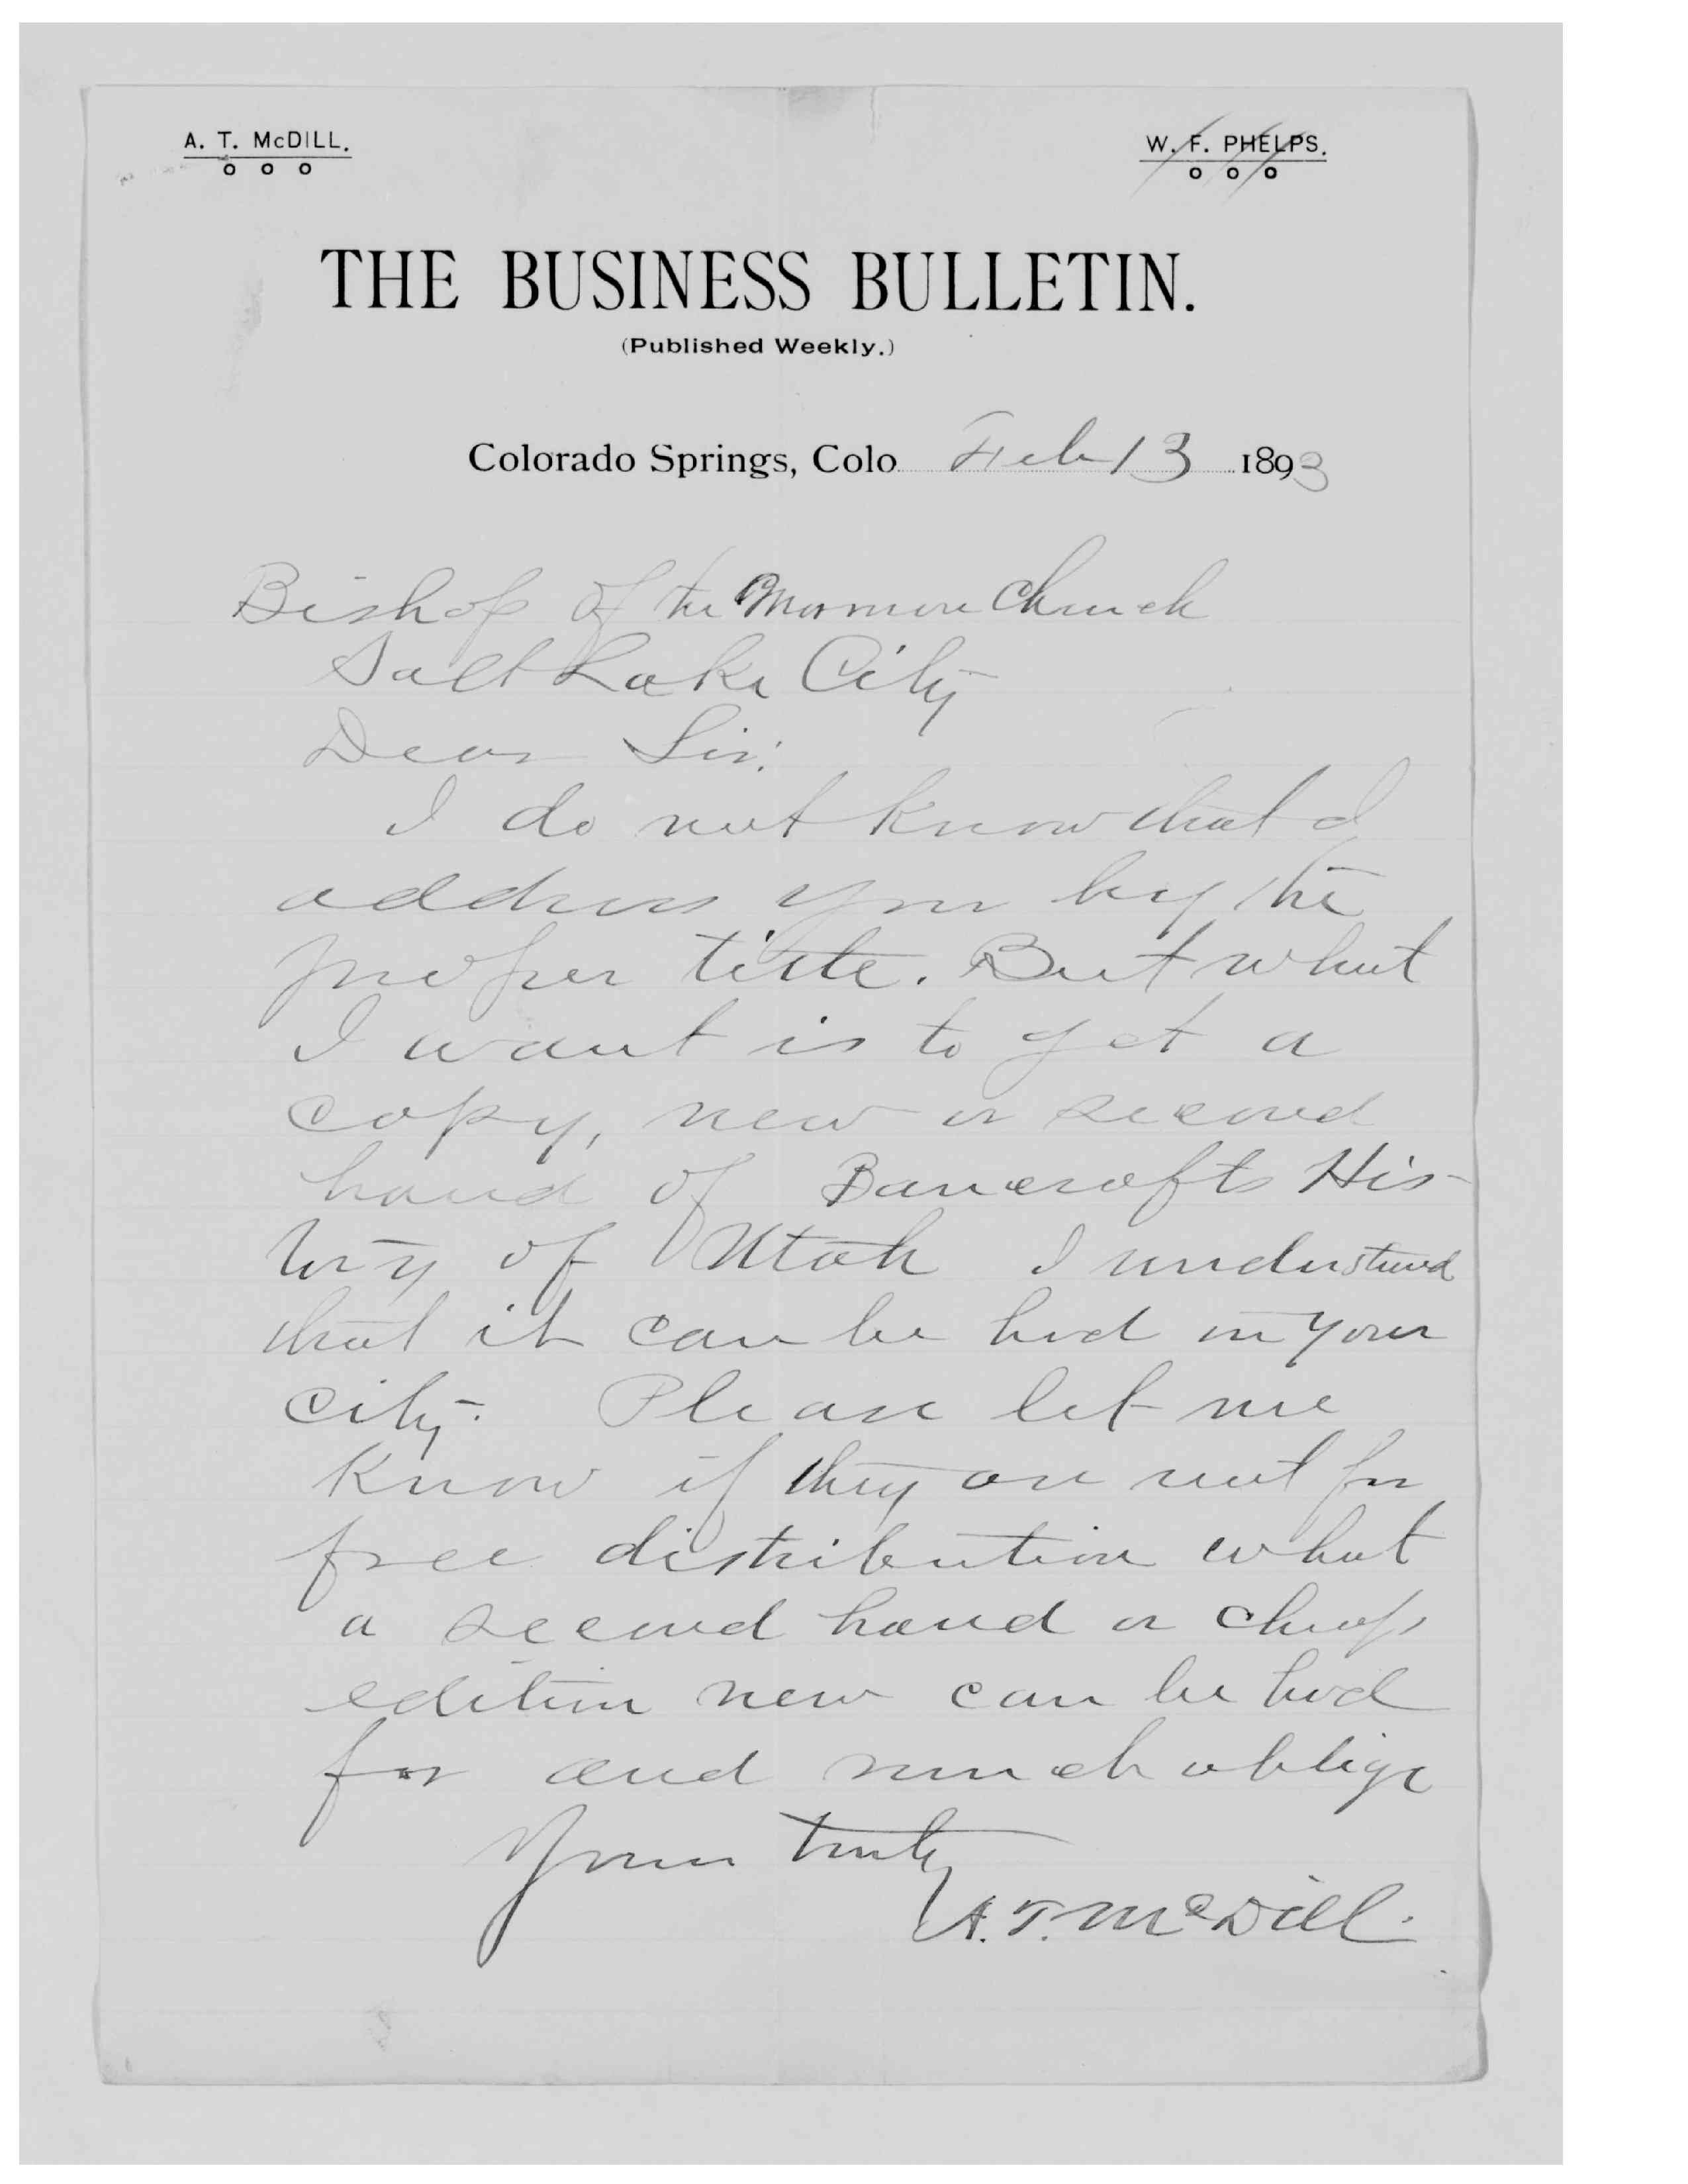 A. T. McDILL.
W. F. PHELPS.
THE BUSINESS BULLETIN.
(Published Weekly.)
Colorado Springs, Colo Feb 13 1893
Bishop of the Mormon Church
Salt Lake City
Dear Sir:
I do not know that I
address you by the
proper title. But what
I want is to get a
copy, new or second
hand of Bancrofts His-
tory of Utah I understand
that it can be had in your
city. Please let me
know if they are not for
free distribution what
a second hand or cheap
edition new can be had
for and much oblige
Yours truly
A. T. McDill.